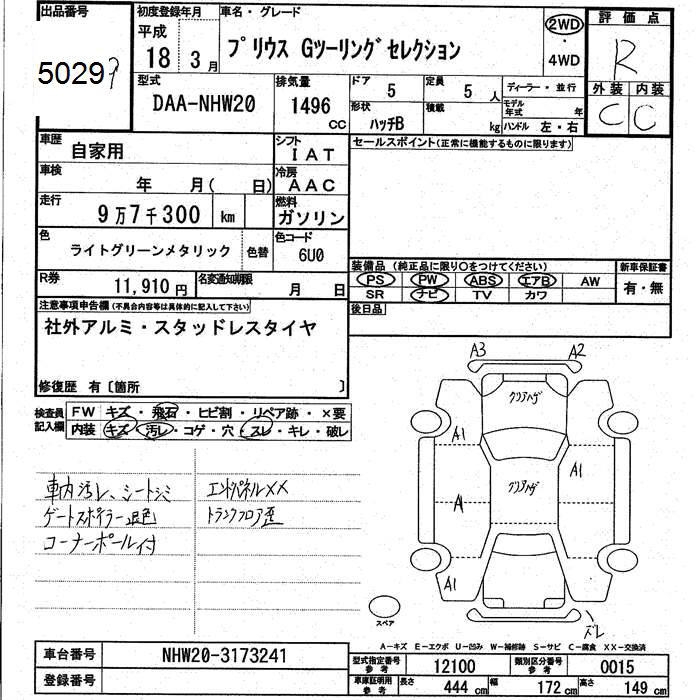 出品番号
50297
初度登録年月
平成
18年 3月
車名・グレード
プリウス Gツーリングセレクション
2WD
・
4WD
評価点
R
外装 内装
C C
型式
DAA-NHW20
排気量
1496
CC
ドア
5
定員
5 人
形状
ハッチB
積載
kg
ディーラー・並行
モデル年式 年
ハンドル 左・右
車歴
自家用
シフト
IAT
車検
年 月( 日)
冷房
AAC
走行
9万7千300 km
燃料
ガソリン
色
ライトグリーンメタリック
色替
色コード
6U0
R券
11,910円
名変通知期限
月 日
セールスポイント(正常に機能するものに限ります)
装備品 (純正品に限り○をつけてください)
PS PW ABS エアB AW
SR ナビ TV カワ
新車保証書
有・無
後日品
注意事項申告欄(不具合内容等は具体的に記入して下さい)
社外アルミ・スタッドレスタイヤ
修復歴 有〔箇所 〕
検査員記入欄
FW キズ・飛石・ヒビ割・リペア跡・×要
内装 キズ・汚レ・コゲ・穴・スレ・キレ・破レ
車内汚レ、シートシミ
ゲートスポイラー退色
コーナーポール付
エンドパネルXX
トランクフロア歪
A3
A2
クリアハゲ
A1
A1
クリアハゲ
A
A1
ズレ
スペア
A-キズ E-エクボ U-凹み W-補修跡 S-サビ C-腐食 XX-交換済
車台番号
NHW20-3173241
登録番号
型式指定番号
参考
12100
類別区分番号
参考
0015
車庫証明用
参考
長さ 444 cm
幅 172 cm
高さ 149 cm